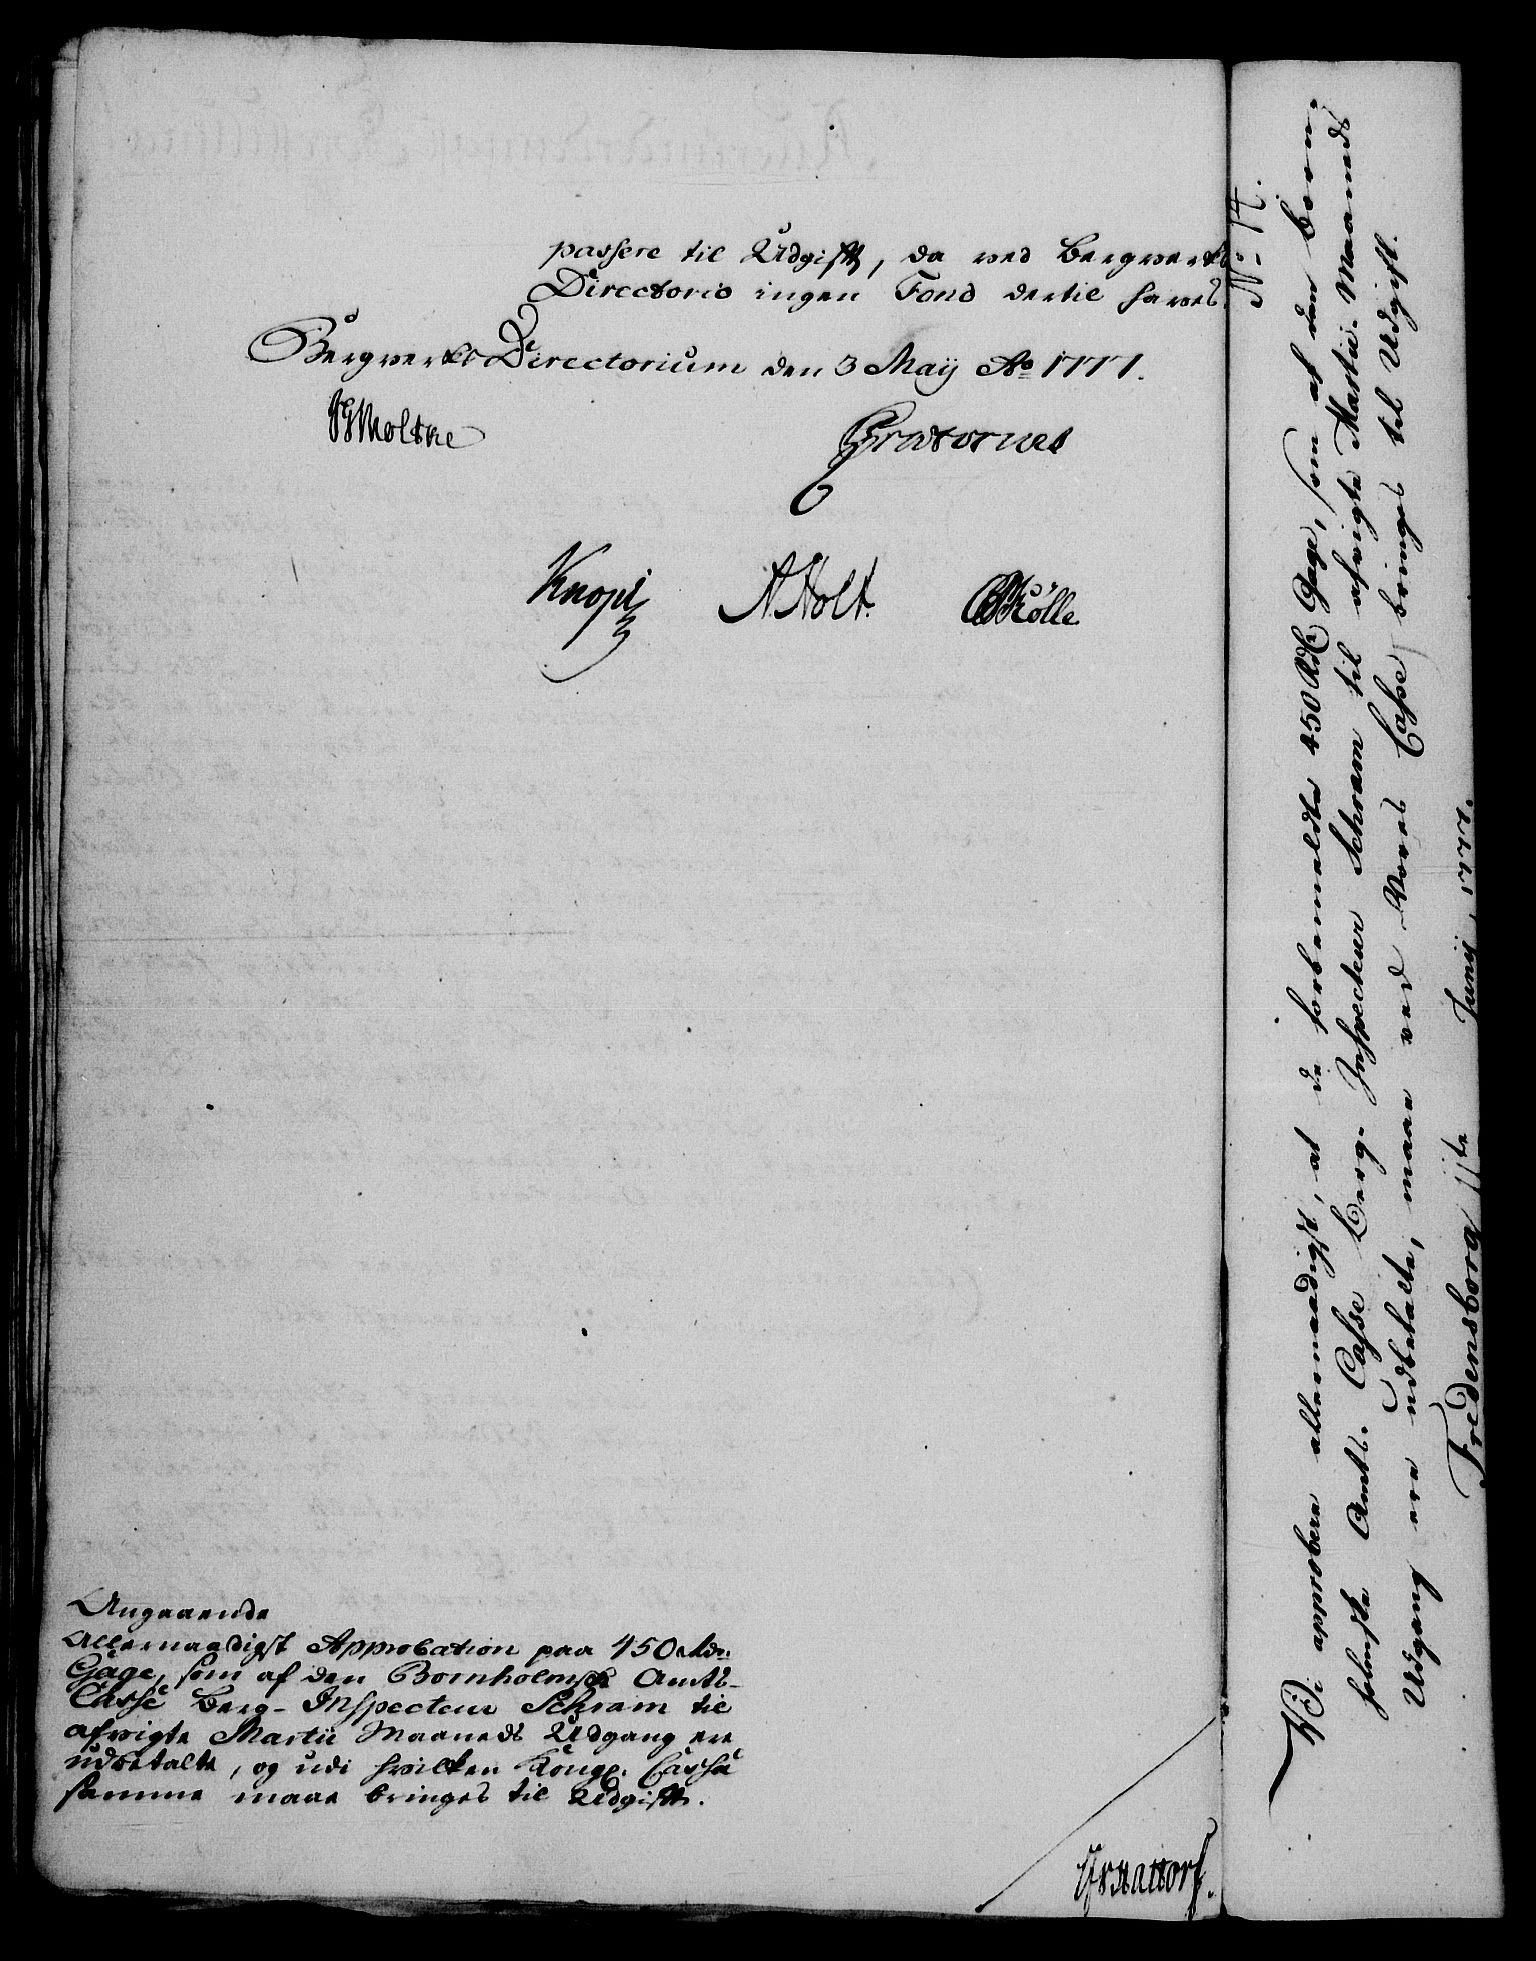 passere til Udgift, da ved Bergverks
Directorio ingen Fond dertil haves.
Bergverks Directorium den 3 Maij Ao 1777.
JGMoltke
Knopf
A. Holt.
Kölle
Angaaende
Allernaadigst Approbation paa 450 rdr.
Gage, som af den Bornholmske Amts-
Casse Berg-Inspecteur Schram til
afvigte Martii Maaneds Udgang ere
udbetalte, og udi hvilken Kongl. Cassa
samme maae bringes til Udgift.
No 14.
Vi approbere allernaadigst, at de forbemeldte 450 Rdl Gage, som af den Born-
holmske Amts-Casse Berg-Inspecteur Schram til afvigte Martii Maaneds
Udgang ere udbetalte, maae ved Vores Casse bringes til Udgift.
Fredensborg 11te Junij, 1777.